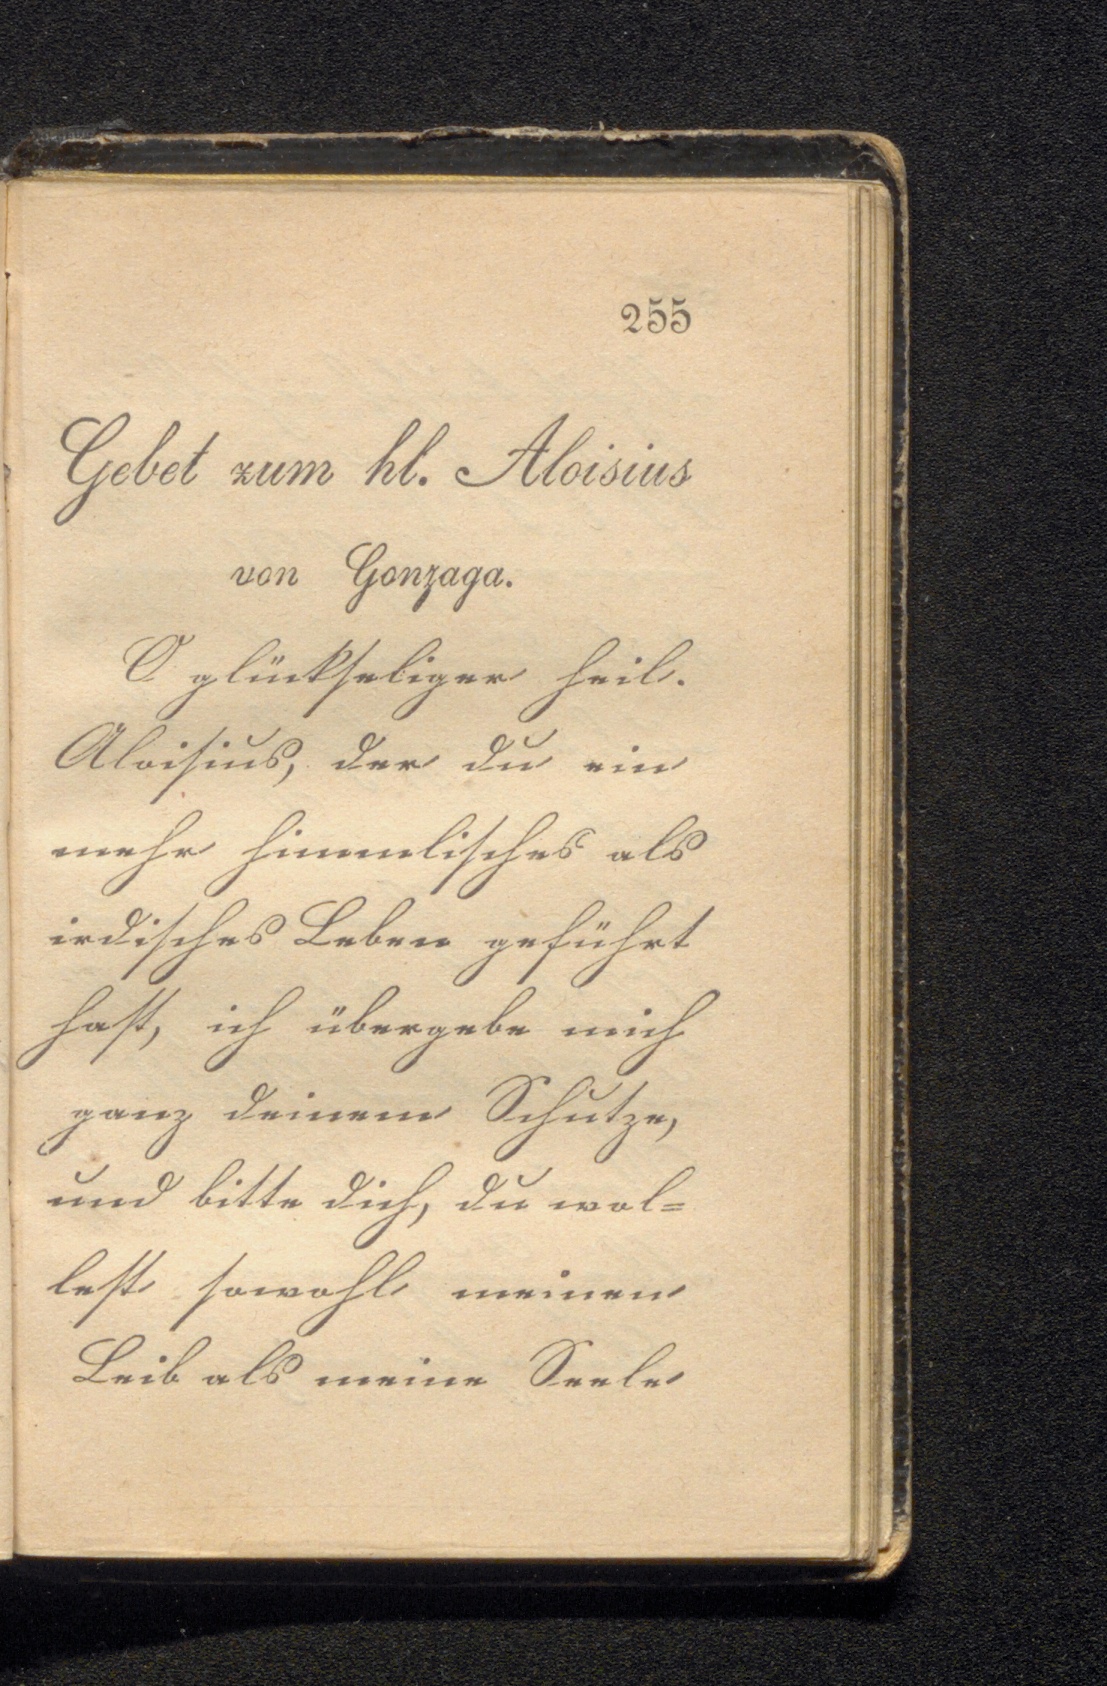 255
Gebet zum hl. Aloisius
von Gonzaga.
O glückseliger heil.
Aloisius, der du ein
mehr himmlisches als
irdisches Leben geführt
hast, ich übergebe mich
ganz deinem Schutze,
und bitte dich, du wol=
lest sowohl meinen
Leib als meine Seele